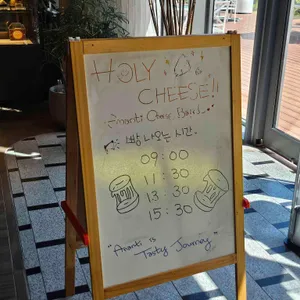 HOLY
CHEESE!!
Ananti Chess Bread
빵 나오는 시간.
09:00
11:30
13:30
15:30
"Ananti is
Tasty Journey"